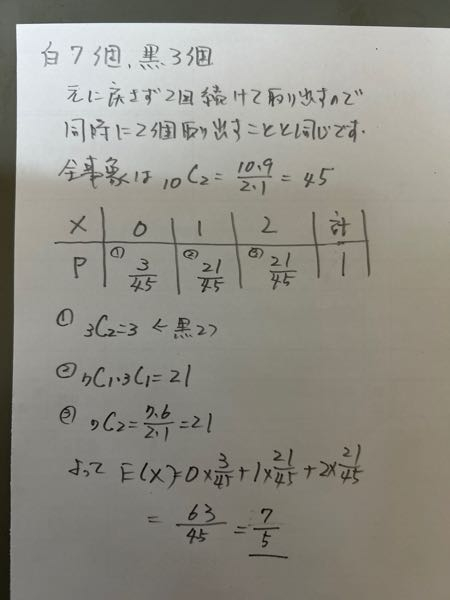 白7個、黒3個
元に戻さず2回続けて取り出すので
同時に2個取り出すことと同じです.
全事象は 10C2 = 10.9/2.1 = 45
X 0 1 2 計
P ① 3/45 ② 21/45 ③ 21/45 1
① 3C2=3 ← 黒2つ
② 7C1・3C1=21
③ 7C2=7.6/2.1=21
よって E(X)=0×3/45+1×21/45+2×21/45
= 63/45 = 7/5